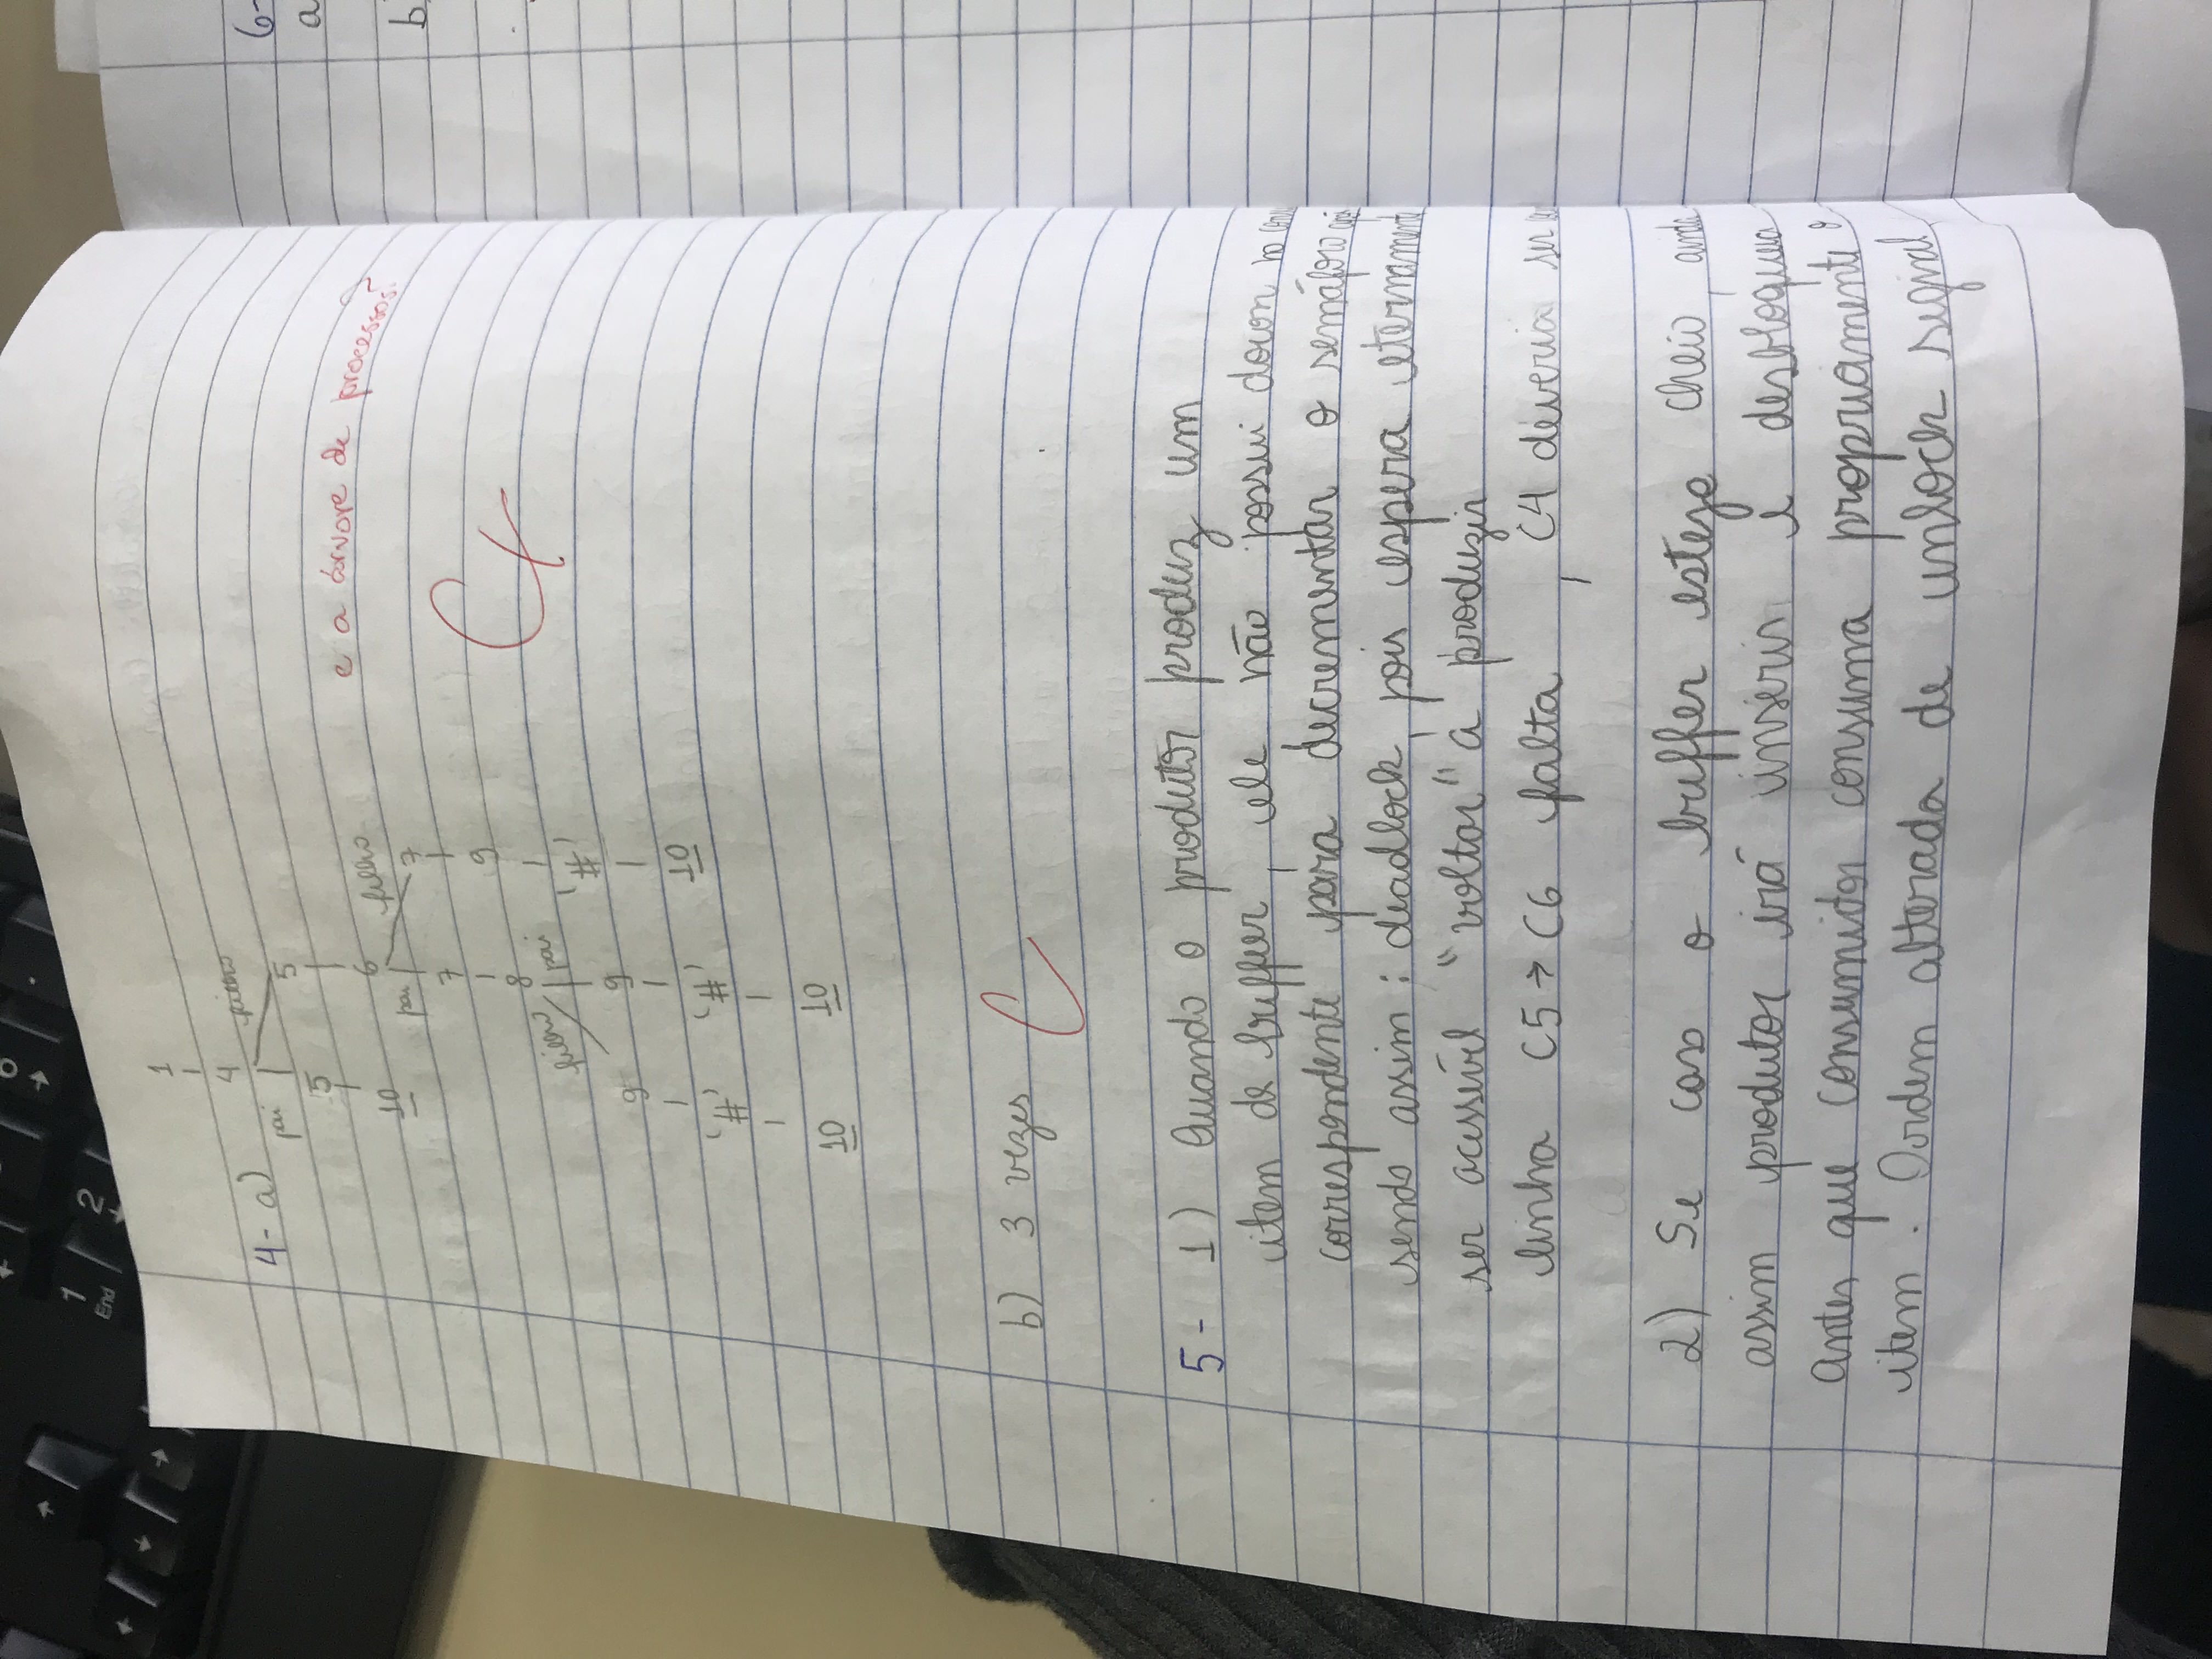 1
End
2
0
1
4
4- a) pai filho
5 5
10 6
pai filho
7 7
8 9
filho pai '#'
9 9 10
'#' '#'
10 10
e a árvore de processos?
C
b) 3 vezes C
5- 1) Quando o produtor produz um
item de buffer, ele não possui down no
correspondente para decrementar o semáforo
sendo assim: deadlock, pois espera eternamente
ser acessível "voltar" a produzir
linha C5 → C6 falta , C4 deveria ser
2) Se caso o buffer esteja cheio, ainda
assim produtor irá inserir e desbloqueia
antes que consumidor consuma propriamente o
item. Ordem alterada de unlock signal
6-
a
b